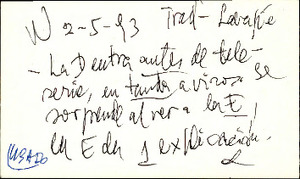 W 2-5-93 Trad- Lavapié
- La D entra antes de tele-
serie, en tanda avisos se
sorprende al ver a la E,
la E da 1 explicación.
USADO 2